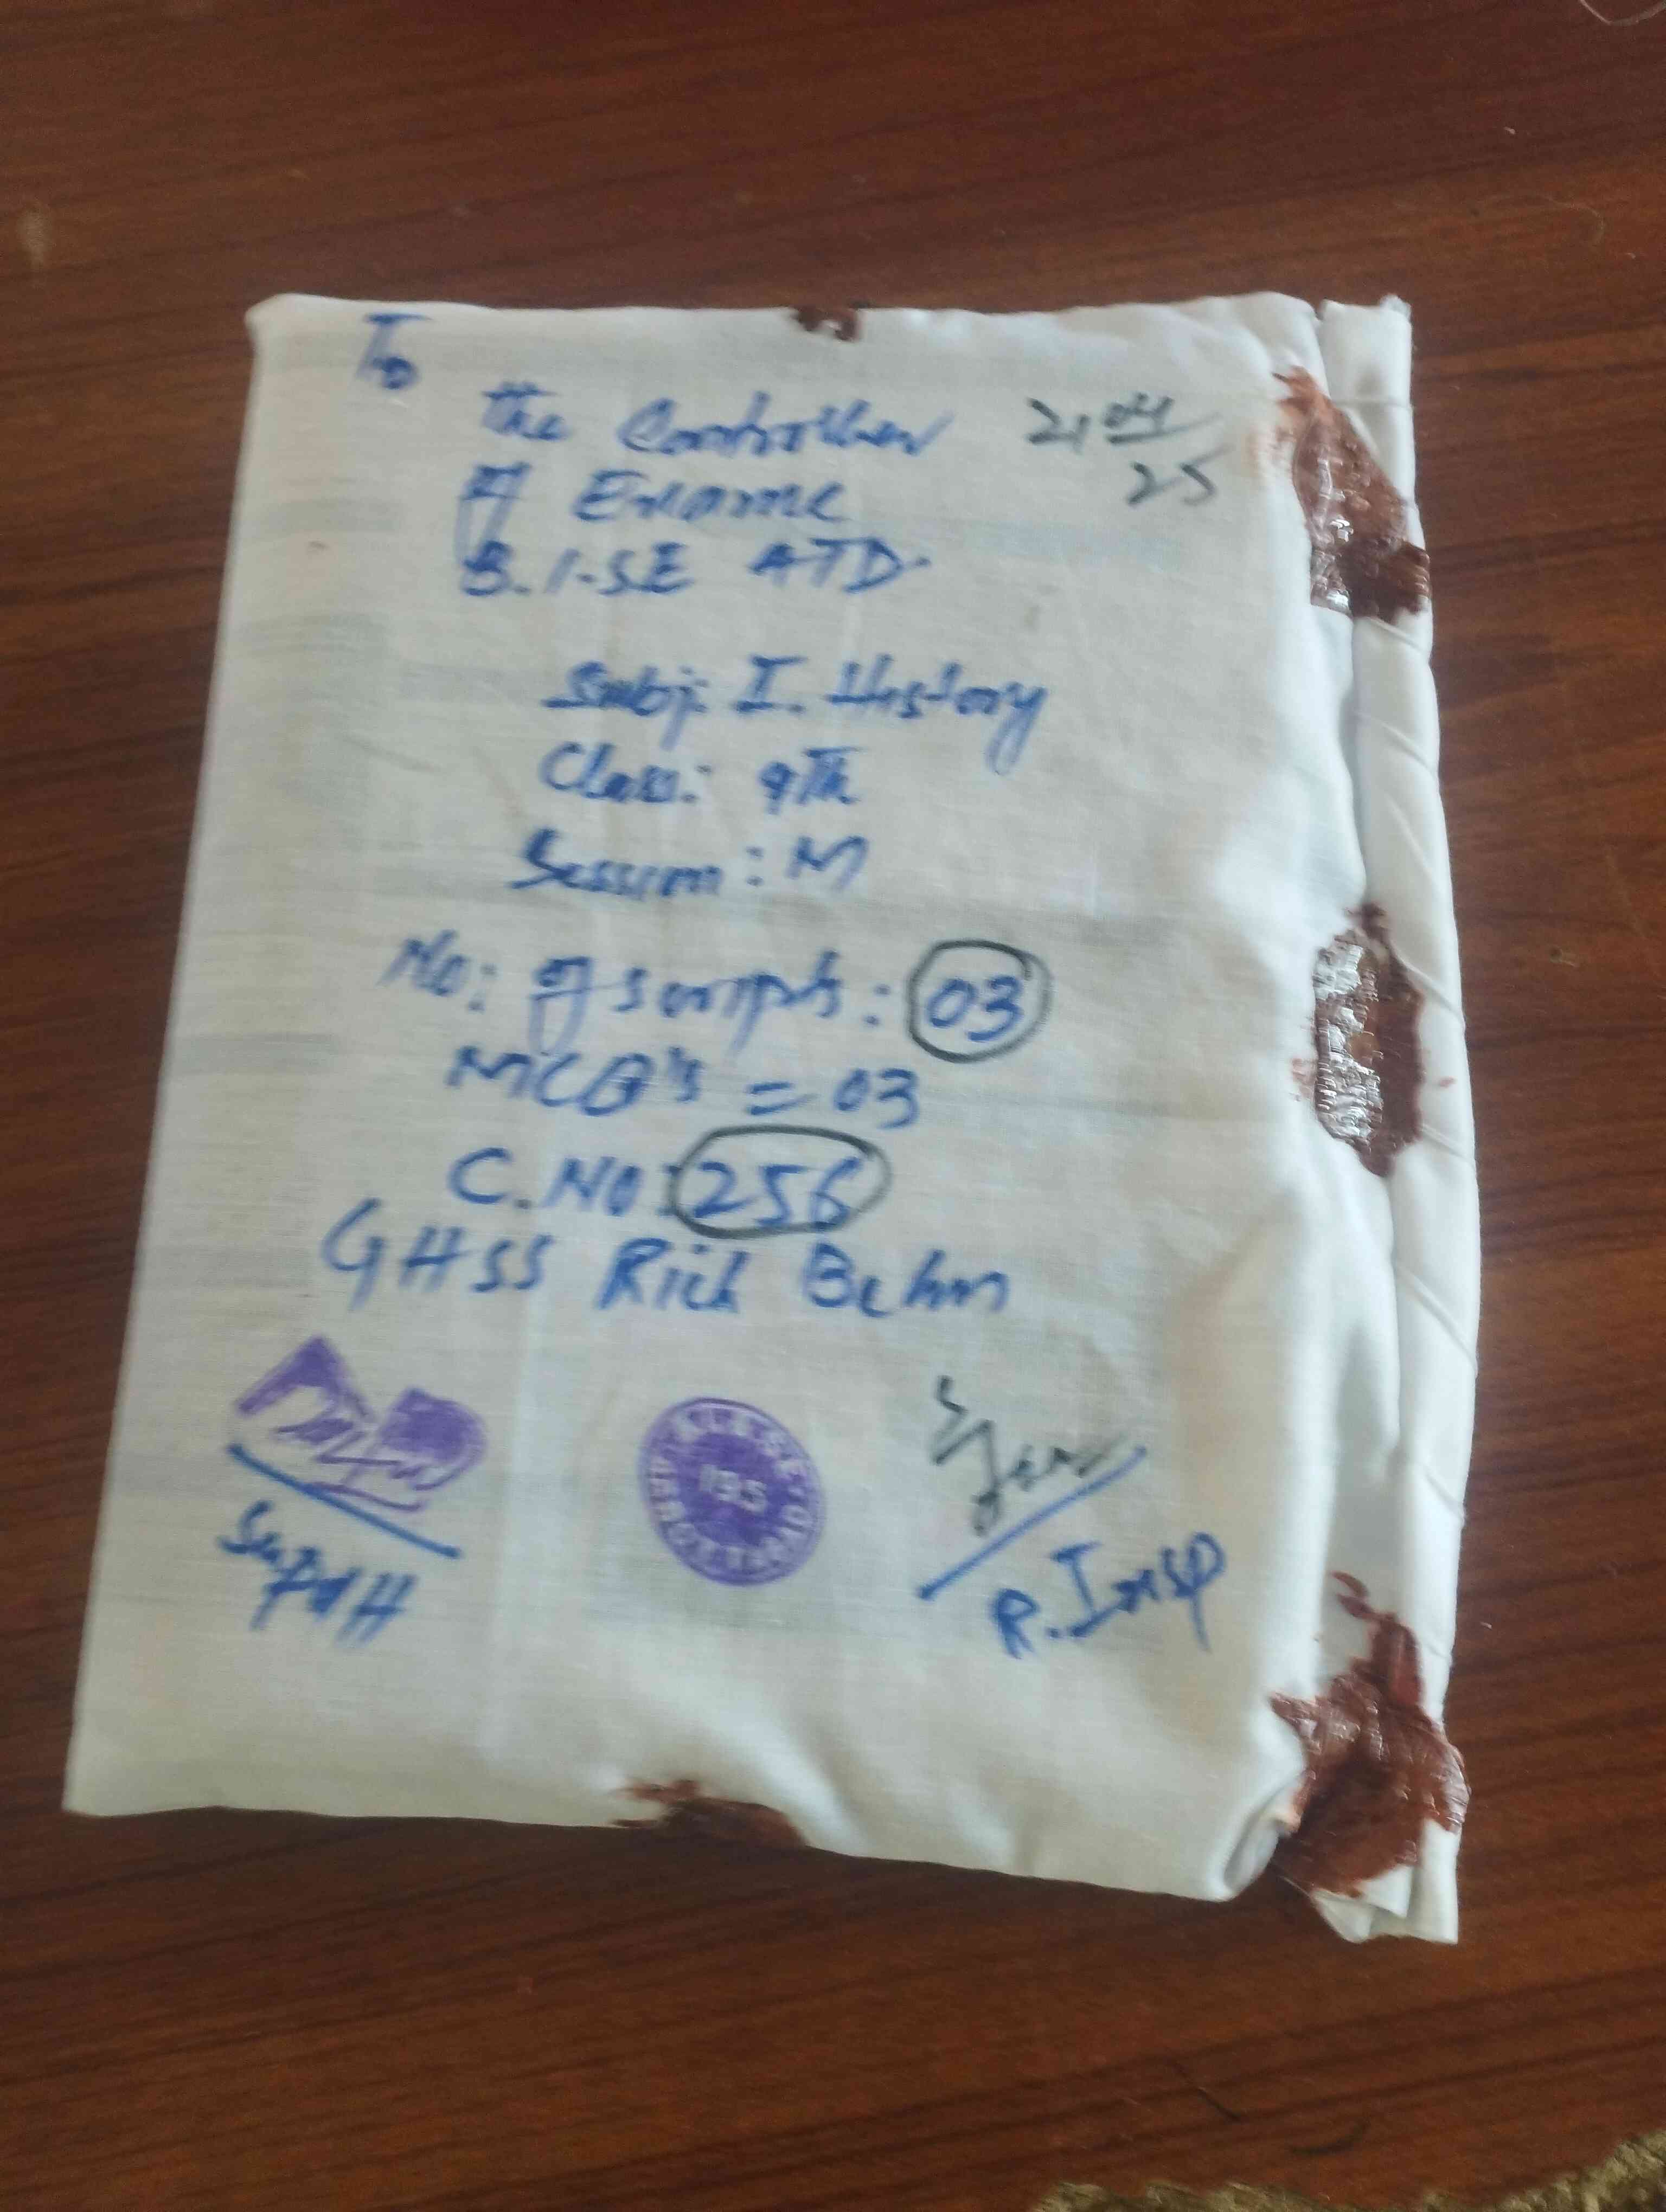 To
the Controller
of Exame
B.I.SE ATD.
21 04
25
Subj: I. History
Class: 9Th
Session: M
No: of scripts: 03
MCQ's = 03
C.NO: 256
GHSS Rich Behn
Supdtt
B.I.&.S.E
195
ABBOTTABAD
R. Insp